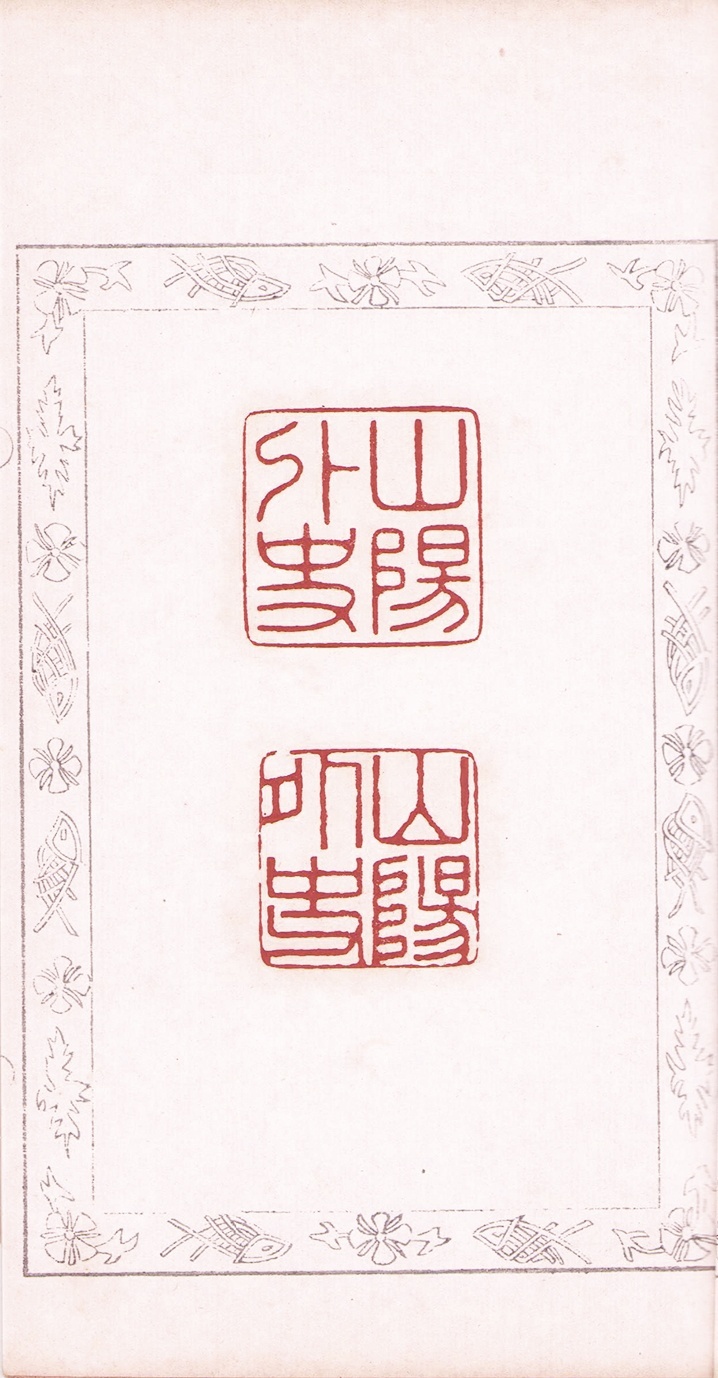 山陽
外史
山陽
外史